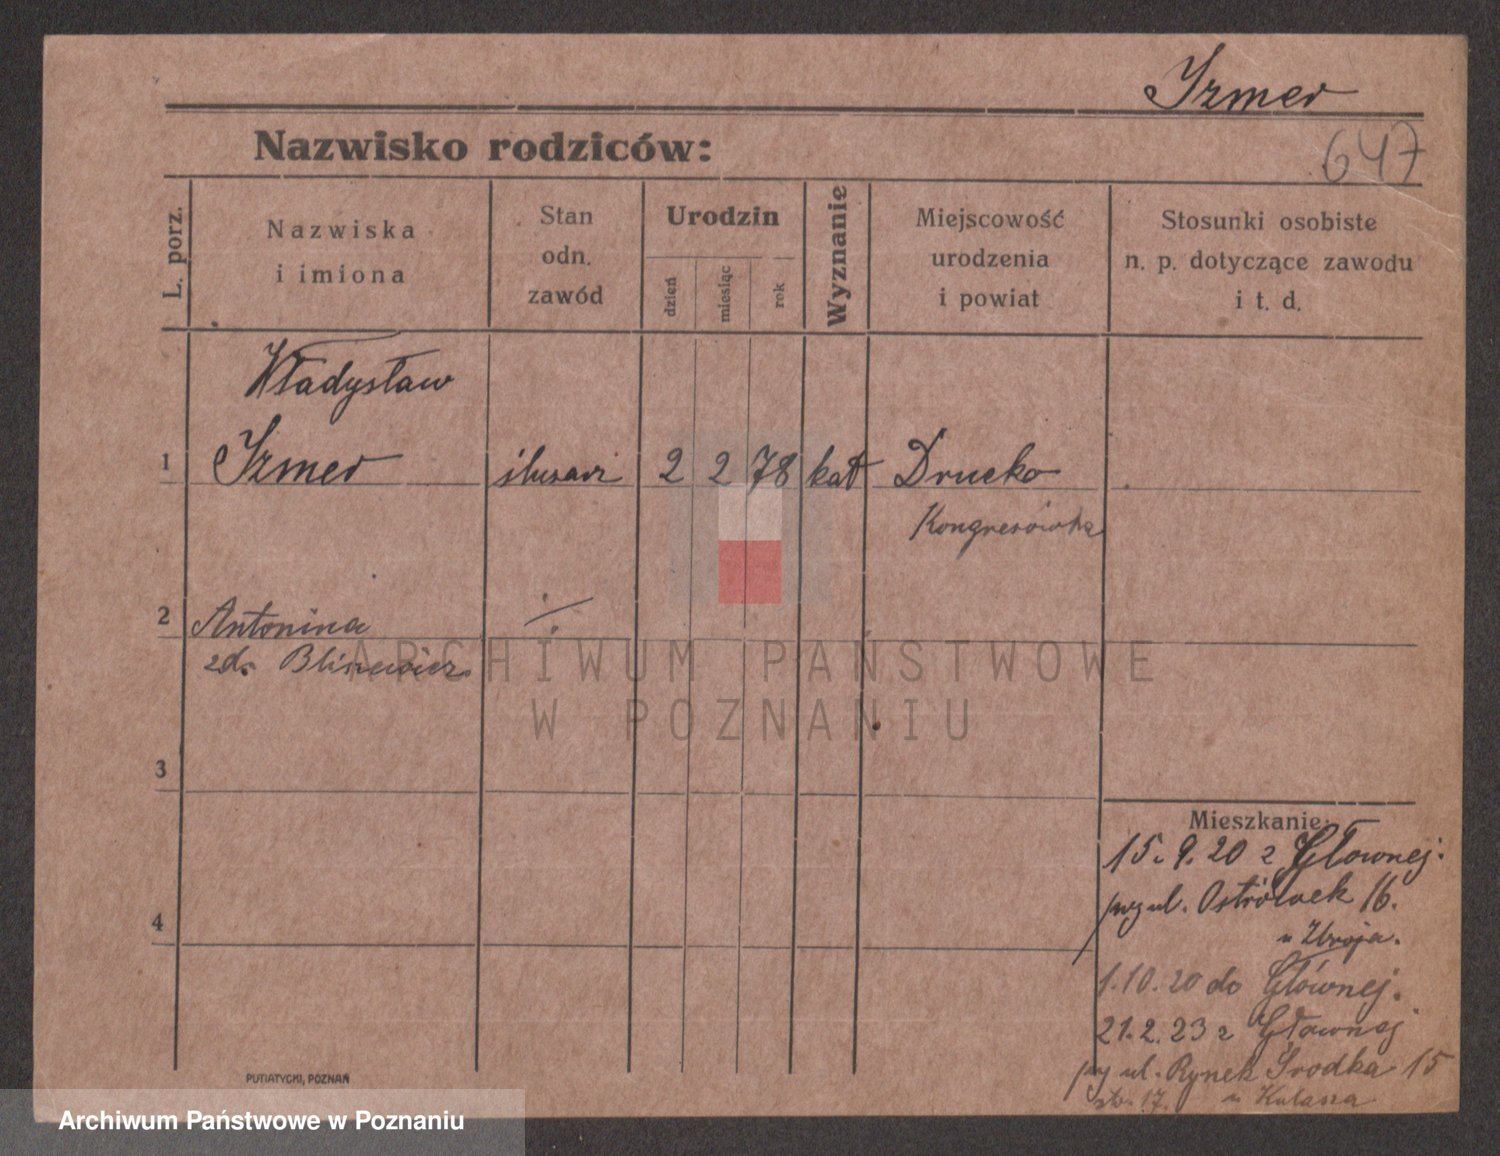 Izmer
647
Nazwisko rodziców:
L. porz.
Nazwiska
i imiona
Stan
odn.
zawód
Urodzin
dzień
miesiąc
rok
Wyznanie
Miejscowość
urodzenia
i powiat
Stosunki osobiste
n. p. dotyczące zawodu
i t. d.
Władysław
1 Izmer ślusarz 2 2 78 kat Drucko
Kongresówka
2 Antonina
zd.
ARCHIWUM PAŃSTWOWE
W POZNANIU
3
4
Mieszkanie:
15.9.20 z Głownej.
ul. Ostrówek 16.
u
1.10.20 do Głównej.
21.2.23 z Głownej
ul. Rynek Środka 15
17. u
PUTIATYCKI, POZNAŃ
Archiwum Państwowe w Poznaniu